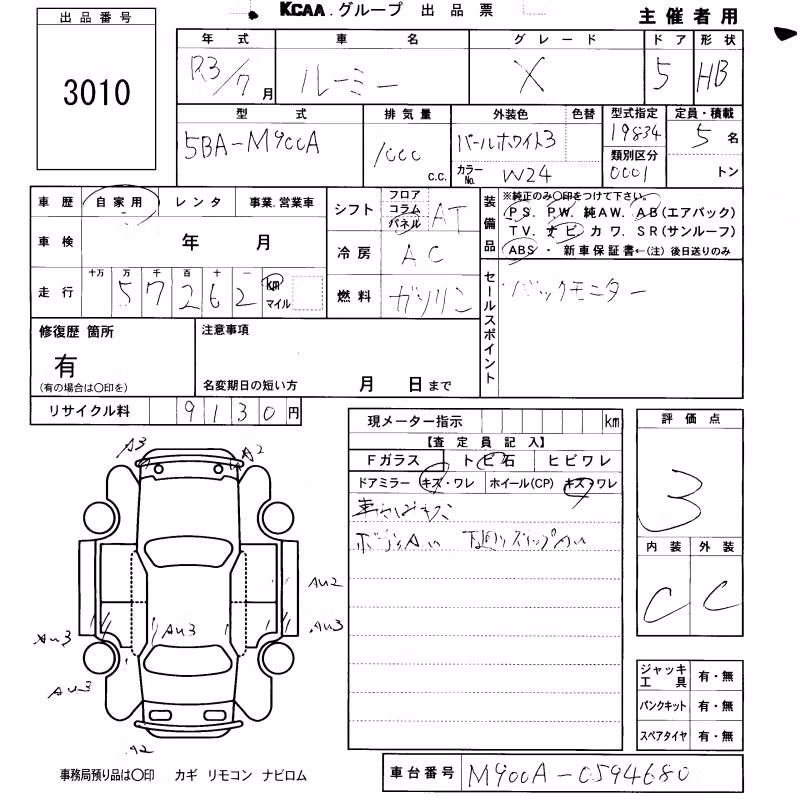 KCAA.グループ 出品票
主催者用
出品番号
3010
年式 車名 グレード ドア 形状
R3/7月 ルーミー X 5 HB
型式 排気量 外装色 色替 型式指定 定員・積載
5BA-M900A 1000 c.c. パールホワイト3 19834 5名
カラーNo. W24 類別区分 0001 トン
車歴 自家用 レンタ 事業.営業車
シフト フロア コラム パネル AT
装備品 ※純正のみ○印をつけて下さい。
PS. PW. 純AW. AB(エアバック)
TV. ナビ カワ. SR(サンルーフ)
ABS ・ 新車保証書←(注) 後日送りのみ
車検 年 月
冷房 AC
走行 十万 万 千 百 十 一
57262 km マイル
燃料 ガソリン
セールスポイント バックモニター
修復歴 箇所 注意事項
有
(有の場合は○印を) 名変期日の短い方 月 日まで
リサイクル料 9130円
現メーター指示 km
【査定員記入】
Fガラス トビ石 ヒビワレ
ドアミラー キズ・ワレ ホイール(CP) キズ・ワレ
評価点
3
内装 外装
C C
A3 A2
AU2
AU3 AU3 AU3
AU3
A2
ジャッキ工具 有・無
パンクキット 有・無
スペアタイヤ 有・無
事務局預り品は○印 カギ リモコン ナビロム
車台番号 M900A-0594680